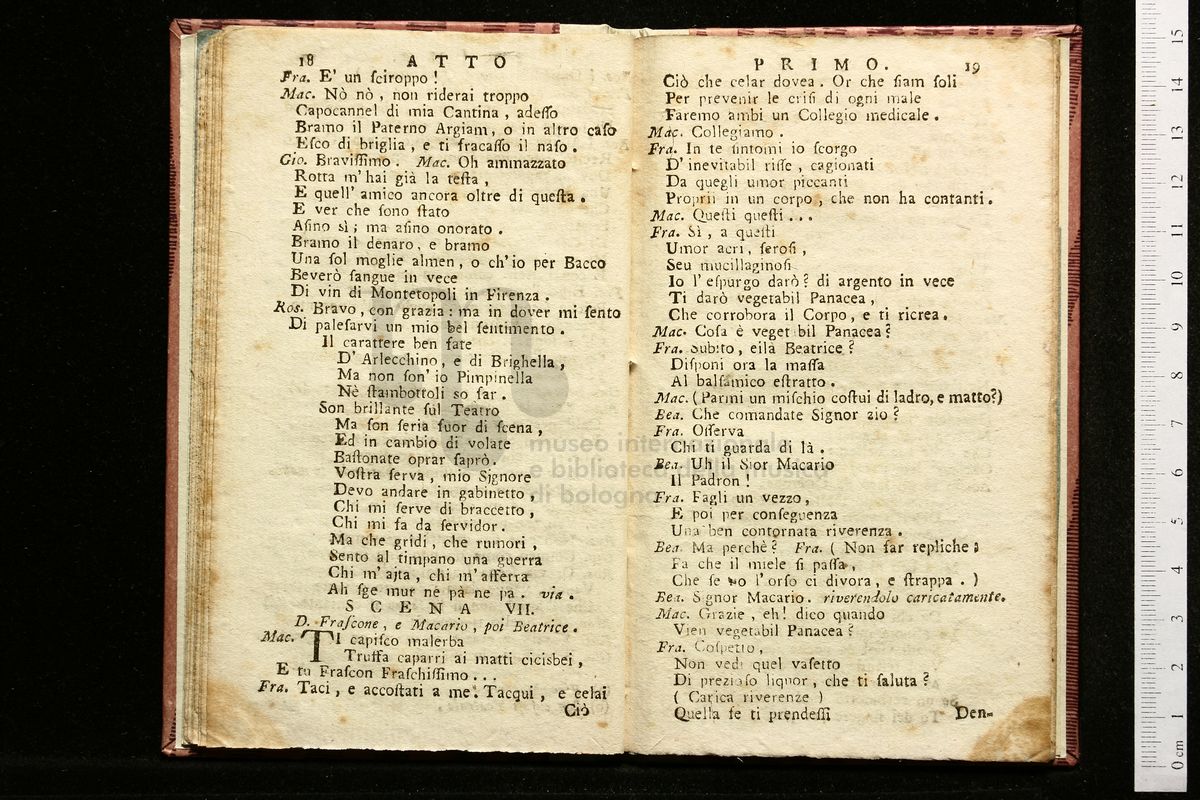 18 ATTO
Fra. E' un ſciroppo!
Mac. Nò nò, non riderai troppo
Capocannel di mia Cantina, adeſſo
Bramo il Paterno Argiam, o in altro caſo
Eſco di briglia, e ti fracaſſo il naſo.
Gio. Braviſſimo. Mac. Oh ammazzato
Rotta m'hai già la teſta,
E quell' amico ancora oltre di queſta.
E ver che ſono ſtato
Aſino sì; ma aſino onorato.
Bramo il denaro, e bramo
Una ſol moglie almen, o ch'io per Bacco
Beverò ſangue in vece
Di vin di Montetopoli in Firenza.
Ros. Bravo, con grazia: ma in dover mi ſento
Di paleſarvi un mio bel ſentimento.
Il carattere ben fate
D' Arlecchino, e di Brighella,
Ma non ſon' io Pimpinella
Nè ſtambottoli so far.
Son brillante ſul Teatro
Ma ſon ſeria fuor di ſcena,
Ed in cambio di volate
Baſtonate oprar ſaprò.
Voſtra ſerva, mio Signore
Devo andare in gabinetto,
Chi mi ſerve di braccetto,
Chi mi fa da ſervidor.
Ma che gridi, che rumori,
Sento al timpano una guerra
Chi m' ajta, chi m' afferra
Ah ſge mur nè pa ne pa. via.
SCENA VII.
D. Fraſcone, e Macario, poi Beatrice.
Mac. TI capiſco malerba
Truffa caparri ai matti cicisbei,
E tu Fraſcon Fraſchiſſimo...
Fra. Taci, e accoſtati a me. Tacqui, e celai
Ciò
PRIMO. 19
Ciò che celar dovea. Or che ſiam ſoli
Per prevenir le criſi di ogni male
Faremo ambi un Collegio medicale.
Mac. Collegiamo.
Fra. In te ſintomi io ſcorgo
D' inevitabil riſſe, cagionati
Da quegli umor piccanti
Proprii in un corpo, che non ha contanti.
Mac. Queſti queſti...
Fra. Sì, a queſti
Umor acri, ſeroſi,
Seu mucillaginoſi
Io l' eſpurgo darò? di argento in vece
Ti darò vegetabil Panacea,
Che corrobora il Corpo, e ti ricrea.
Mac. Coſa è vegetabil Panacea?
Fra. Subito, eilà Beatrice?
Diſponi ora la maſſa
Al balſamico eſtratto.
Mac. (Parmi un miſchio coſtui di ladro, e matto?)
Bea. Che comandate Signor zio?
Fra. Oſſerva
Chi ti guarda di là.
Bea. Uh il Sior Macario
Il Padron!
Fra. Fagli un vezzo,
E poi per conſeguenza
Una ben contornata riverenza.
Bea. Ma perchè? Fra. (Non far repliche:
Fa che il miele ſi paſſa,
Che ſe no l'orſo ci divora, e ſtrappa.)
Bea. Signor Macario. riverendolo caricatamente.
Mac. Grazie, eh! dico quando
Vien vegetabil Panacea?
Fra. Coſpetto,
Non vedi quel vaſetto
Di prezioſo liquor, che ti ſaluta?
(Carica riverenze)
Quella ſe ti prendeſſi
Den-
museo internazionale
e biblioteca della musica
di bologna
0 cm 1 2 3 4 5 6 7 8 9 10 11 12 13 14 15